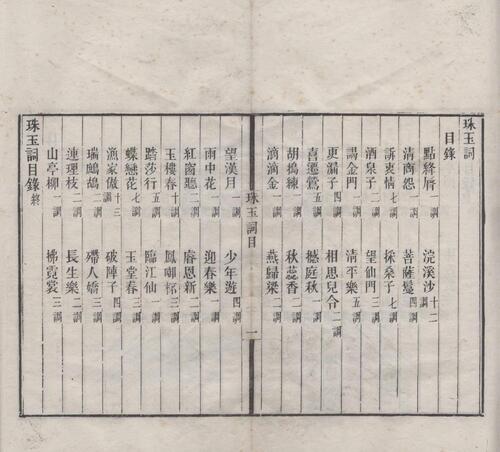 珠玉詞
目錄
點絳脣一調 浣溪沙十二調
清商怨一調 菩薩蠻四調
訴衷情七調 採桑子七調
酒泉子二調 望仙門三調
謁金門一調 清平樂五調
更漏子四調 相思兒令二調
喜遷鶯五調 撼庭秋一調
胡搗練一調 秋蕊香二調
滴滴金一調 燕歸梁二調
珠玉詞目 一
望漢月一調 少年遊四調
雨中花一調 迎春樂一調
紅窗聽二調 睿恩新二調
玉樓春十調 鳳啣杯三調
踏莎行五調 臨江仙一調
蝶戀花七調 玉堂春三調
漁家傲十三調 破陣子四調
瑞鷓鴣二調 殢人嬌三調
連理枝二調 長生樂二調
山亭柳一調 拂霓裳三調
珠玉詞目錄終